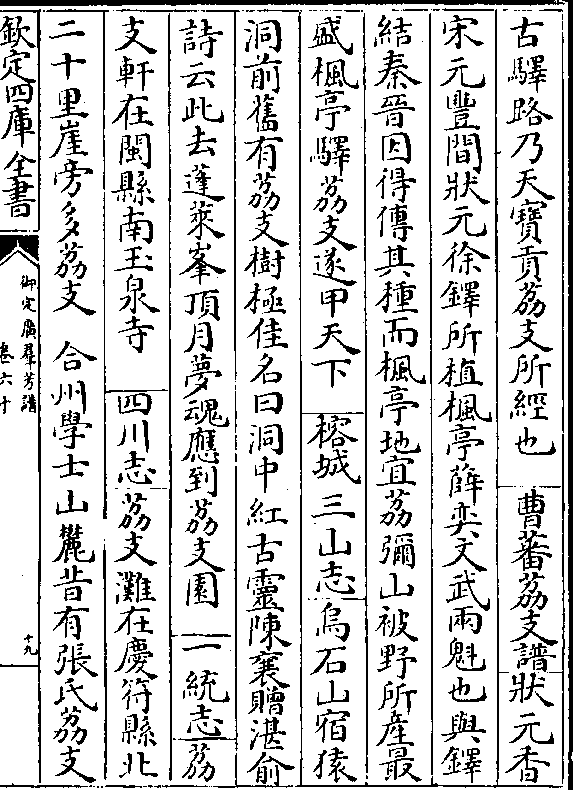 古驛路乃天寶貢荔支所經也　曹蕃荔支譜狀元香
宋元豐間狀元徐鐸所植楓亭薛奕文武兩魁也與鐸
結秦晉因得傳其種而楓亭地宜荔彌山被野所産最
盛楓亭驛荔支遂甲天下　榕城三山志烏石山宿猿
洞前舊有荔支樹極佳名曰洞中紅古靈陳襄贈湛俞
詩云此去蓬萊峯頂月夢魂應到荔支園　一統志荔
支軒在閩縣南玉泉寺　四川志荔支灘在慶符縣北
二十里崖旁多荔支　合州學士山麓昔有張氏荔支
欽定四庫全書
御定廣羣芳譜
卷六十
十九